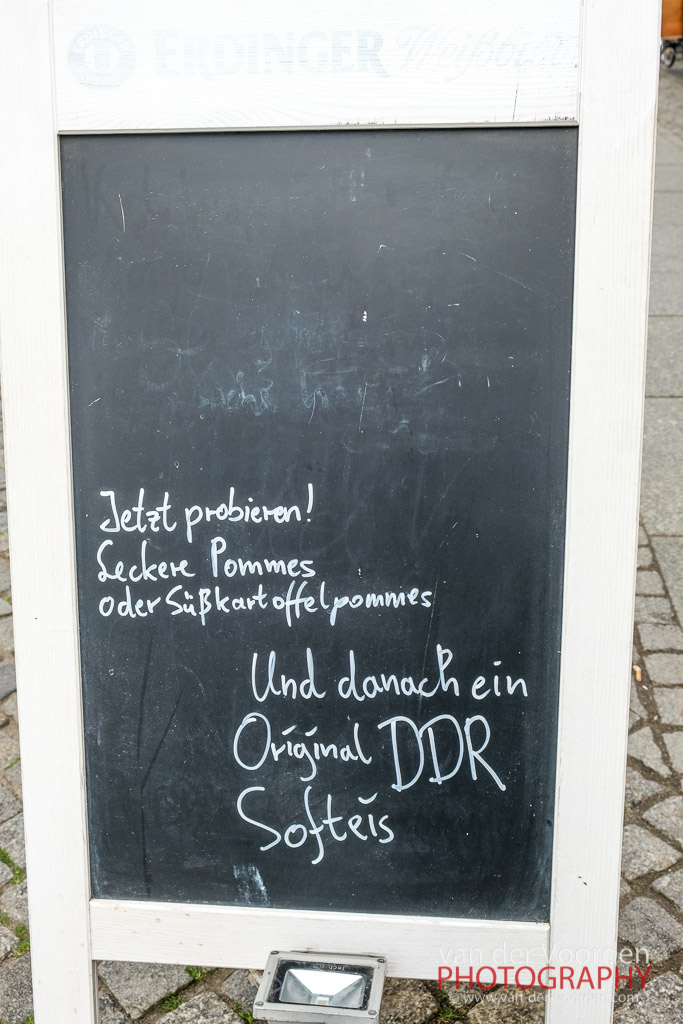 ERDINGER Weißbräu
Jetzt probieren!
Leckere Pommes
oder Süßkartoffelpommes
Und danach ein
Original DDR
Softeis
van der Voorden
PHOTOGRAPHY